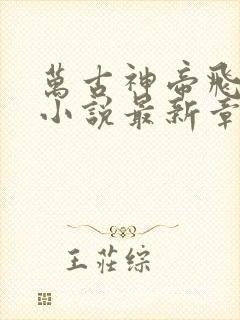 萬古神帝飛
小說最新章
王莊綜